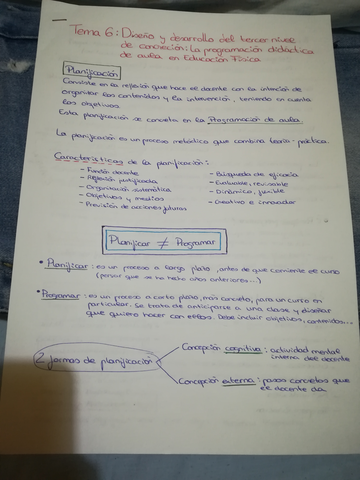 Tema 6: Diseño y desarrollo del tercer nivel
de concreción: La programación didáctica
de aula en Educación Física
Planificación
Consiste en la reflexión que hace el docente con la intención de
organizar los contenidos y la intervención, teniendo en cuenta
los objetivos.
Esta planificación se concreta en la Programación de aula.
La planificación es un proceso metódico que combina teoría-práctica.
Características de la planificación:
- Función docente
- Reflexión justificada
- Organización sistemática
- Objetivos y medios
- Previsión de acciones futuras
- Búsqueda de eficacia
- Evaluable, revisable
- Dinámica, flexible
- Creativo e innovador
Planificar ≠ Programar
• Planificar: es un proceso a largo plazo, antes de que comience el curso
(pensar que se ha hecho años anteriores...)
• Programar: es un proceso a corto plazo, más concreto, para un curso en
particular. Se trata de anticiparse a una clase y diseñar
qué quiero hacer con ellos. Debe incluir objetivos, contenidos...
2 formas de planificación
Concepción cognitiva: actividad mental
interna del docente
Concepción externa: pasos concretos que
el docente da